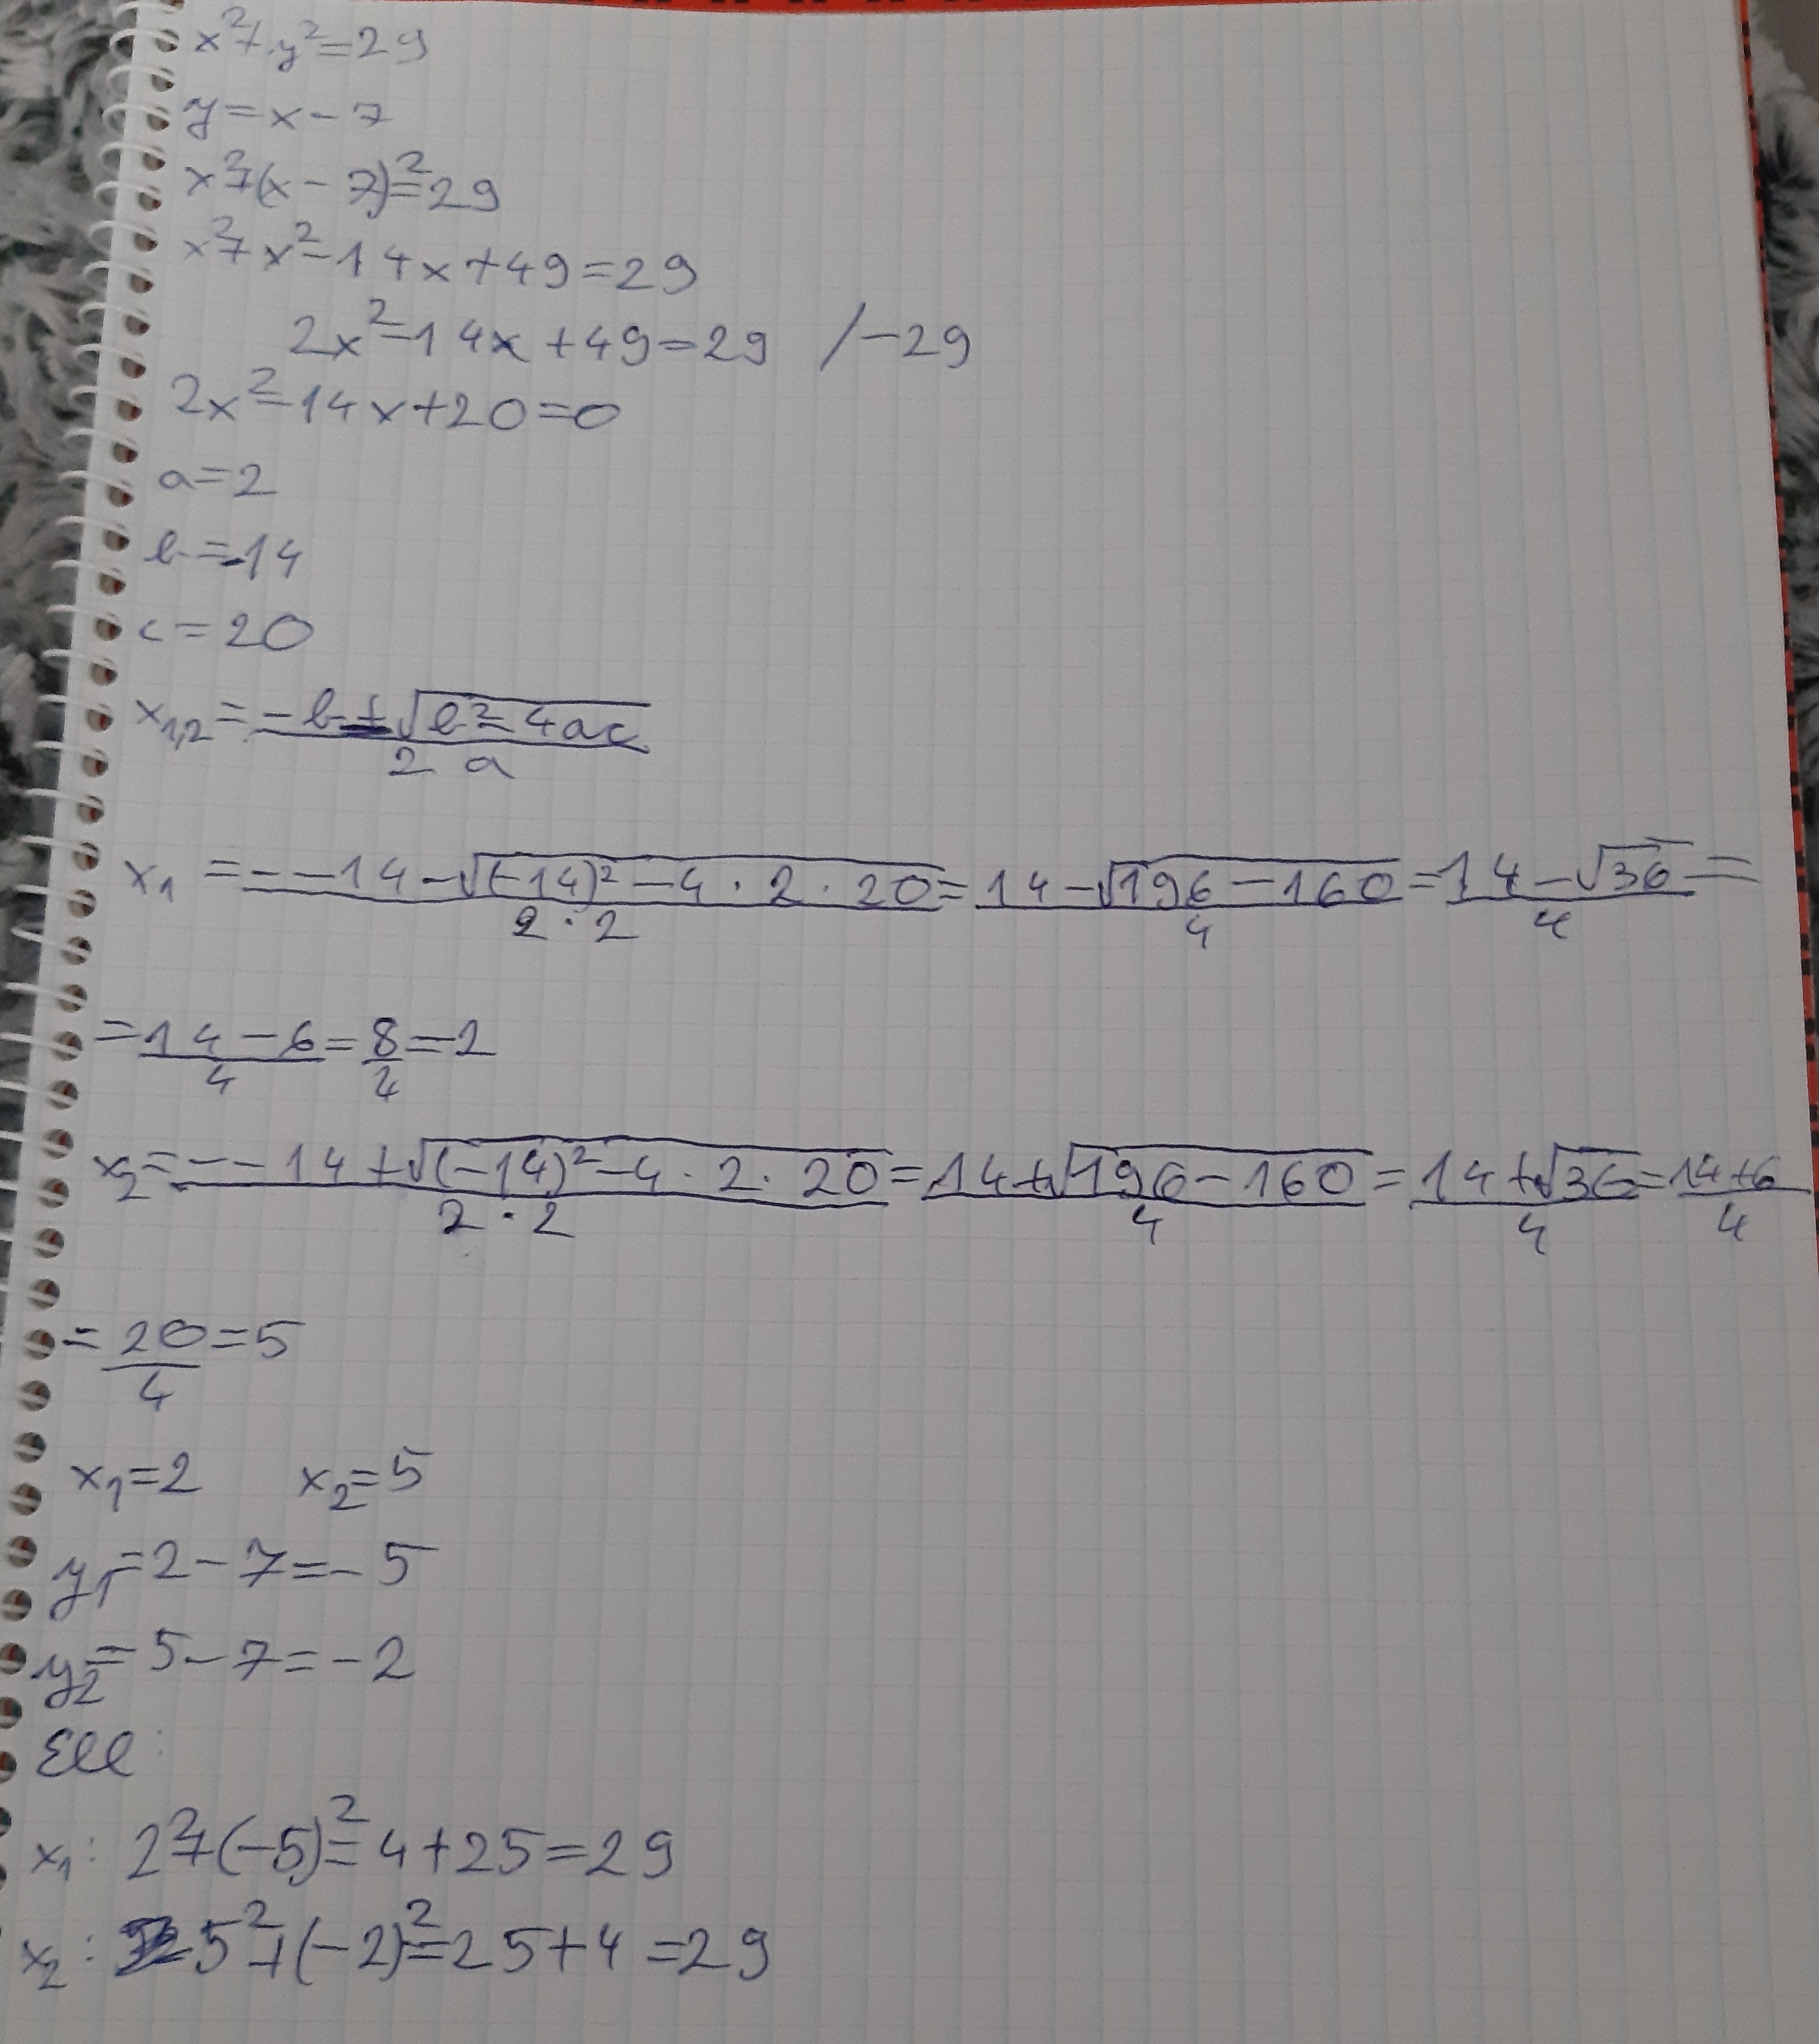 x²+y²=29
y=x-7
x²+(x-7)²=29
x²+x²-14x+49=29
2x²-14x+49=29 /-29
2x²-14x+20=0
a=2
b=-14
c=20
x₁,₂=(-b±√(b²-4ac))/(2a)
x₁=(--14-√((-14)²-4·2·20))/(2·2)=(14-√(196-160))/4=(14-√36)/4=
=(14-6)/4=8/4=2
x₂=(--14+√((-14)²-4·2·20))/(2·2)=(14+√(196-160))/4=(14+√36)/4=(14+6)/4
=20/4=5
x₁=2 x₂=5
y₁=2-7=-5
y₂=5-7=-2
Ell:
x₁: 2²+(-5)²=4+25=29
x₂: 5²+(-2)²=25+4=29